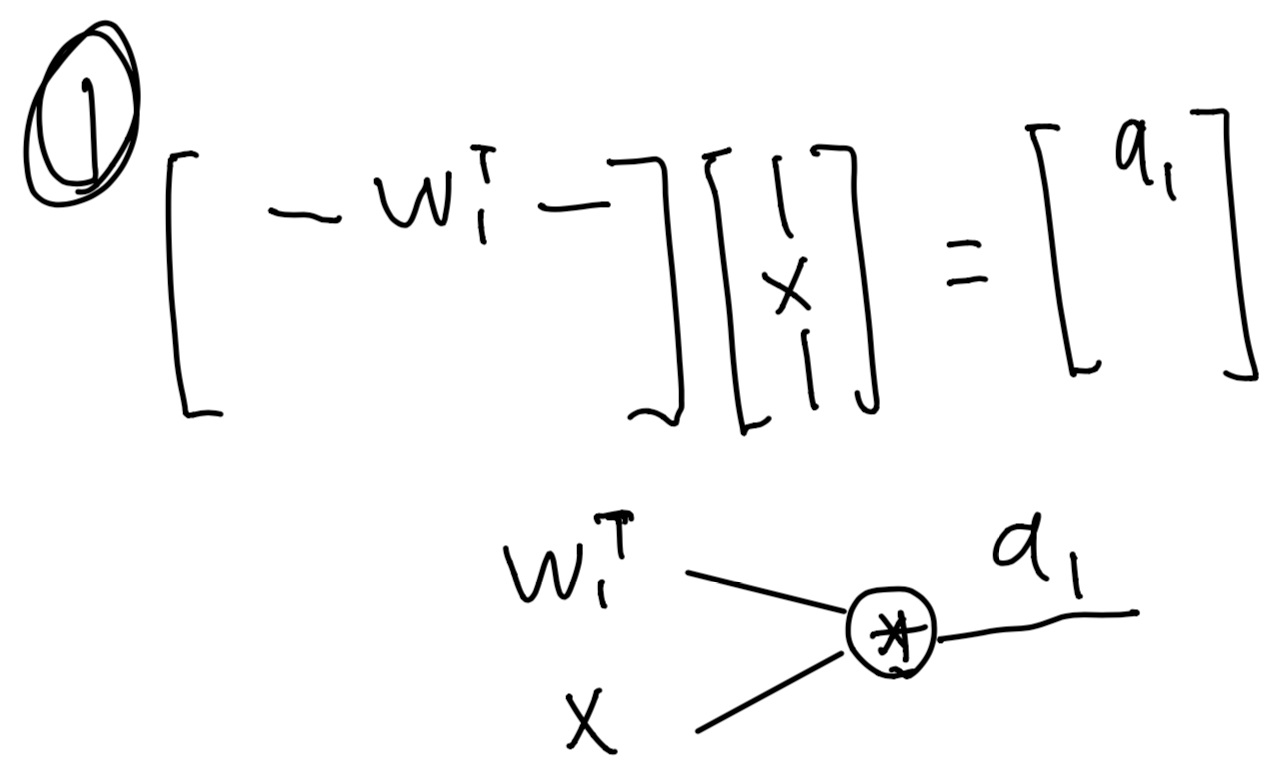 1
[ — W₁ᵀ — ] [ | x | ] = [ a₁ ]
W₁ᵀ
* a₁
x